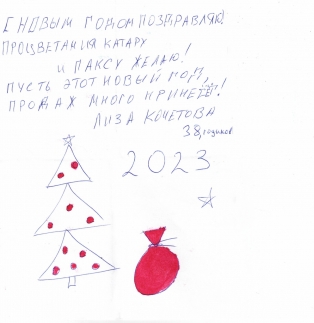 С НОВЫМ ГОДОМ ПОЗДРАВЛЯЮ
ПРОЦВЕТАНИЯ КАТАРУ
И ПАКСУ ЖЕЛАЮ!
ПУСТЬ ЭТОТ НОВЫЙ ГОД,
ПРОДАЖ МНОГО ПРИНЕСЁТ!
ЛИЗА КОЧЕТОВА
38, годиков
2023